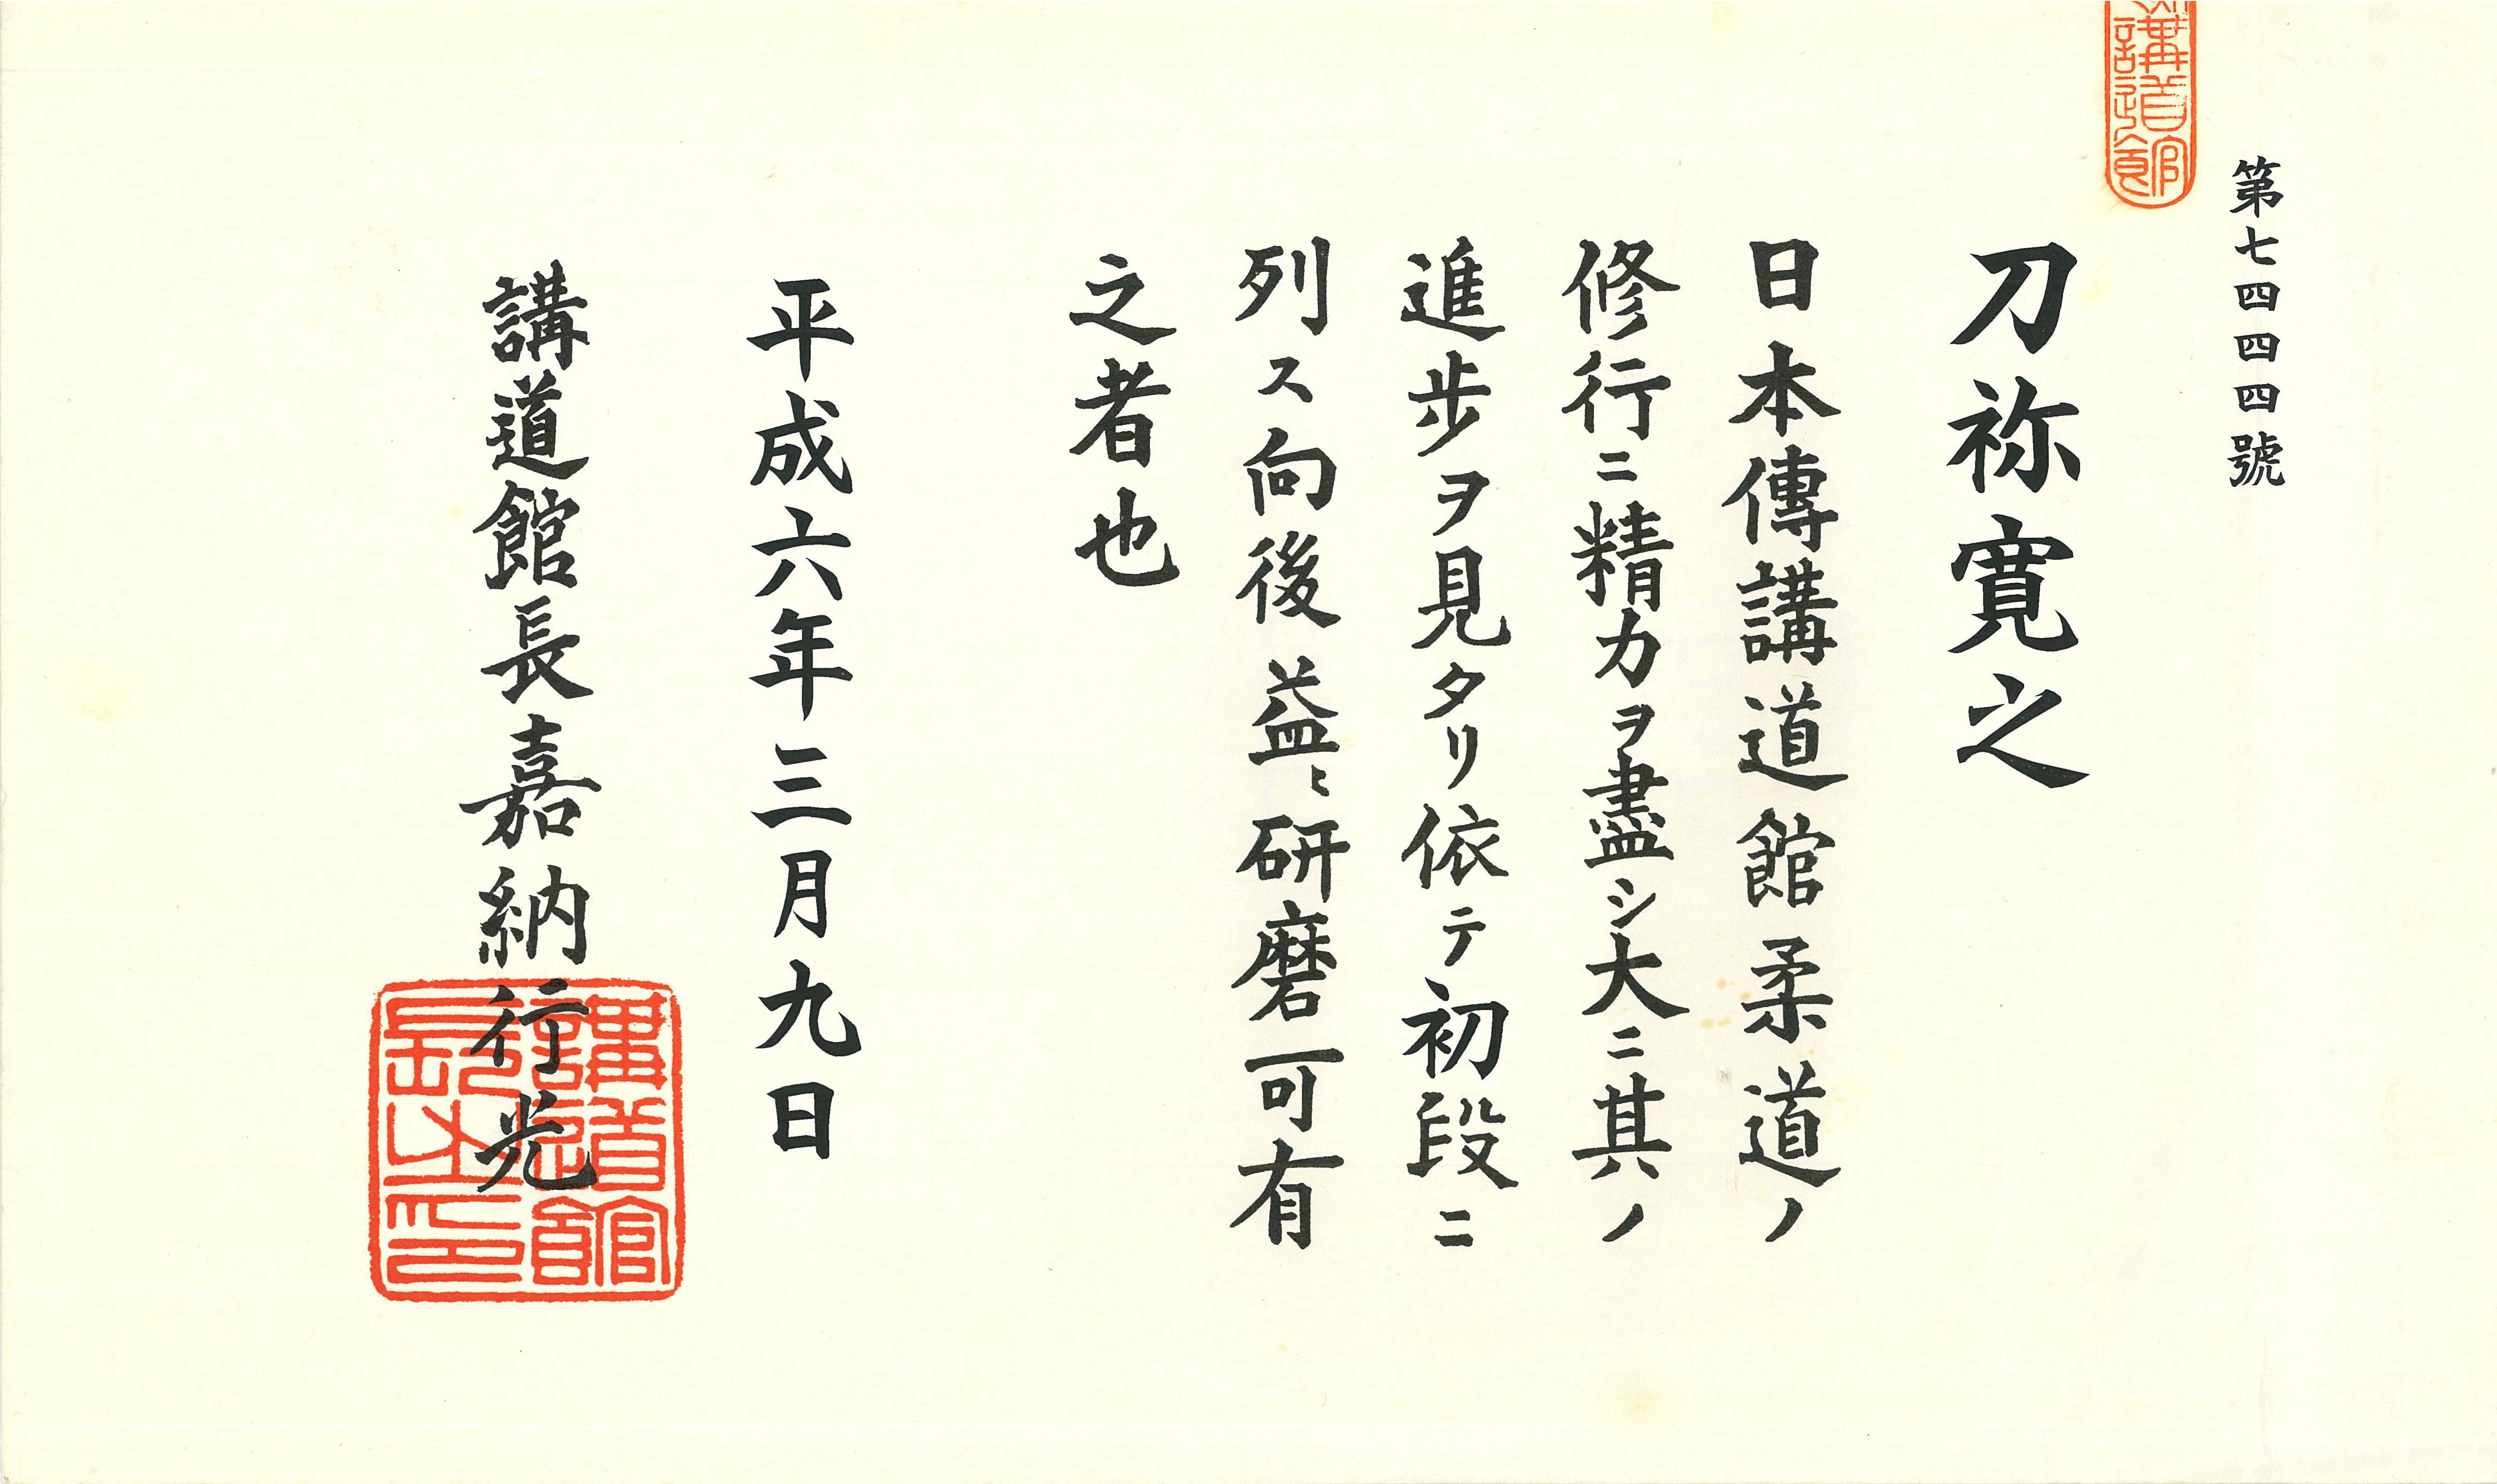 第七四四四號
講道館
刀祢寛之
日本傳講道館柔道ノ
修行ニ精力ヲ盡シ大ニ其ノ
進歩ヲ見タリ依テ初段ニ
列ス向後益〻研磨可有
之者也
平成六年三月九日
講道館長嘉納行光
講道館長之印